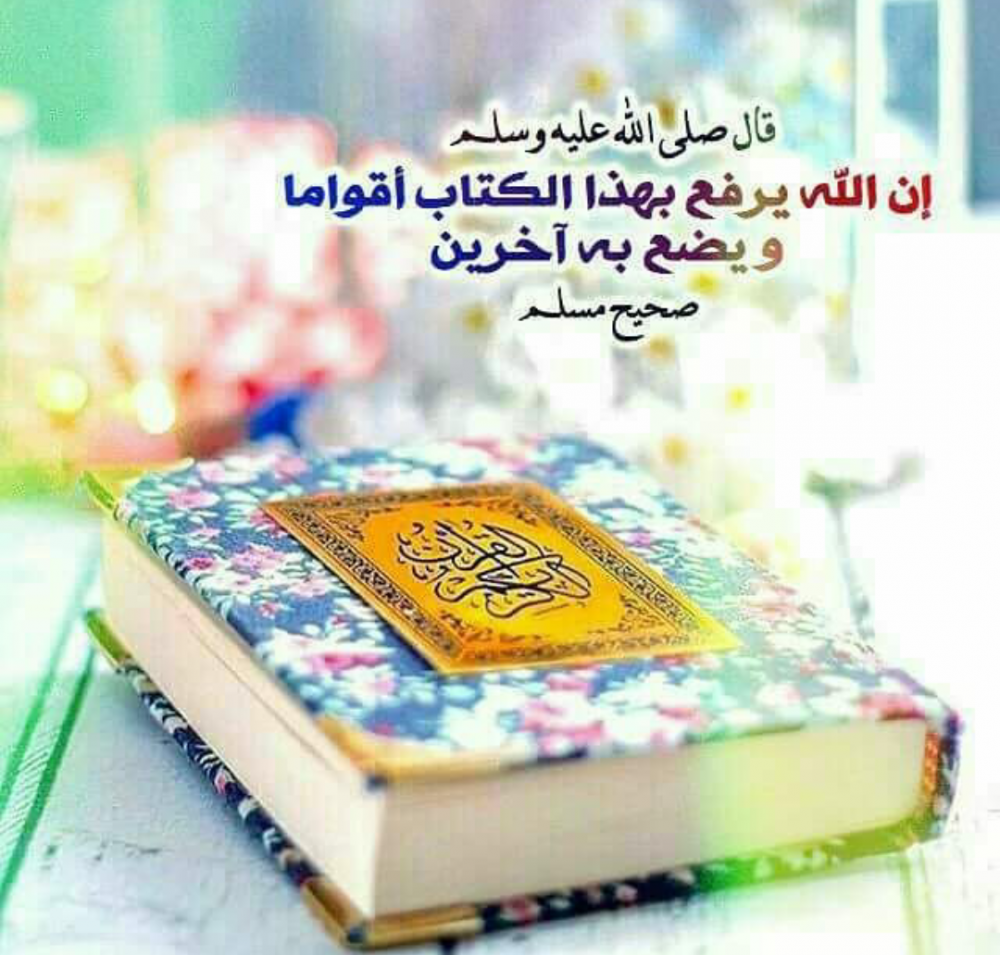 قال صلى الله عليه وسلم
إن الله يرفع بهذا الكتاب أقواما
ويضع به آخرين
صحيح مسلم
القرآن الكريم